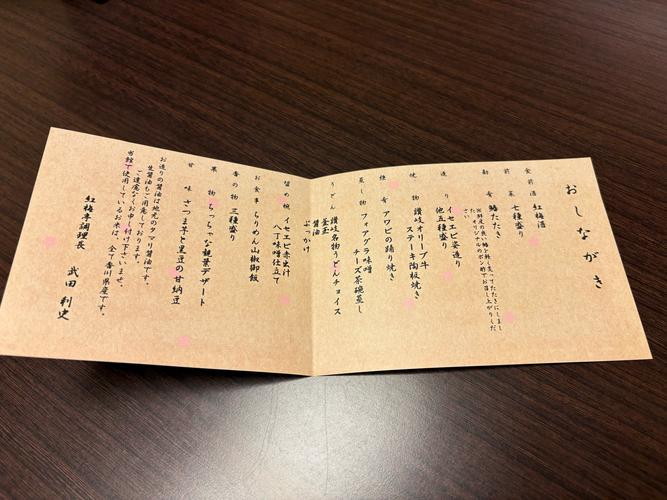 おしながき
食前酒 紅梅酒
前菜 七種盛り
鰆たたき
さい
造り イセエビ姿造り
他五種盛り
焼物 讃岐オリーブ牛
ステーキ陶板焼き
アワビの踊り焼き
蒸し物 フォアグラ味噌
チーズ茶碗蒸し
うどん 讃岐名物うどんチョイス
釜玉
醤油
ぶっかけ
留め椀 イセエビ赤出汁
八丁味噌仕立て
お食事 ちりめん山椒御飯
香の物 三種盛り
果物 ちっちゃな親菓デザート
甘味 さつま芋と黒豆の甘納豆
お造りの醤油は地元のタマリ醤油です。
生醤油もご用意しております。
ご遠慮なくお申し付け下さいませ。
当館で使用しているお米は、全て香川県産です。
紅梅亭調理長 武田 利史